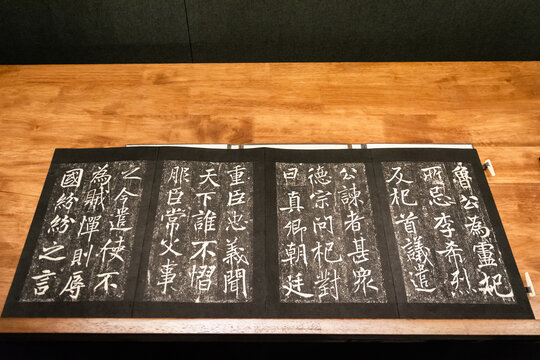 魯公為盧杞
所忌李希烈
反杞首議遣
公諫者甚衆
德宗問杞對
曰真卿朝廷
重臣忠義聞
天下誰不慴
服臣常父事
之今遣使不
為賊憚則辱
國紛紛之言